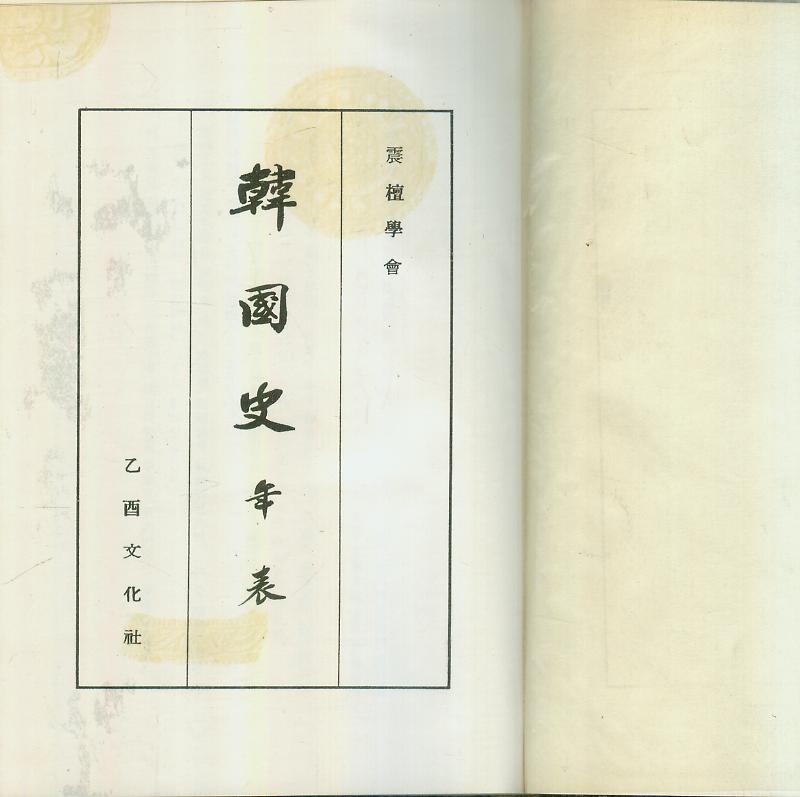 震檀學會
韓國史年表
乙酉文化社